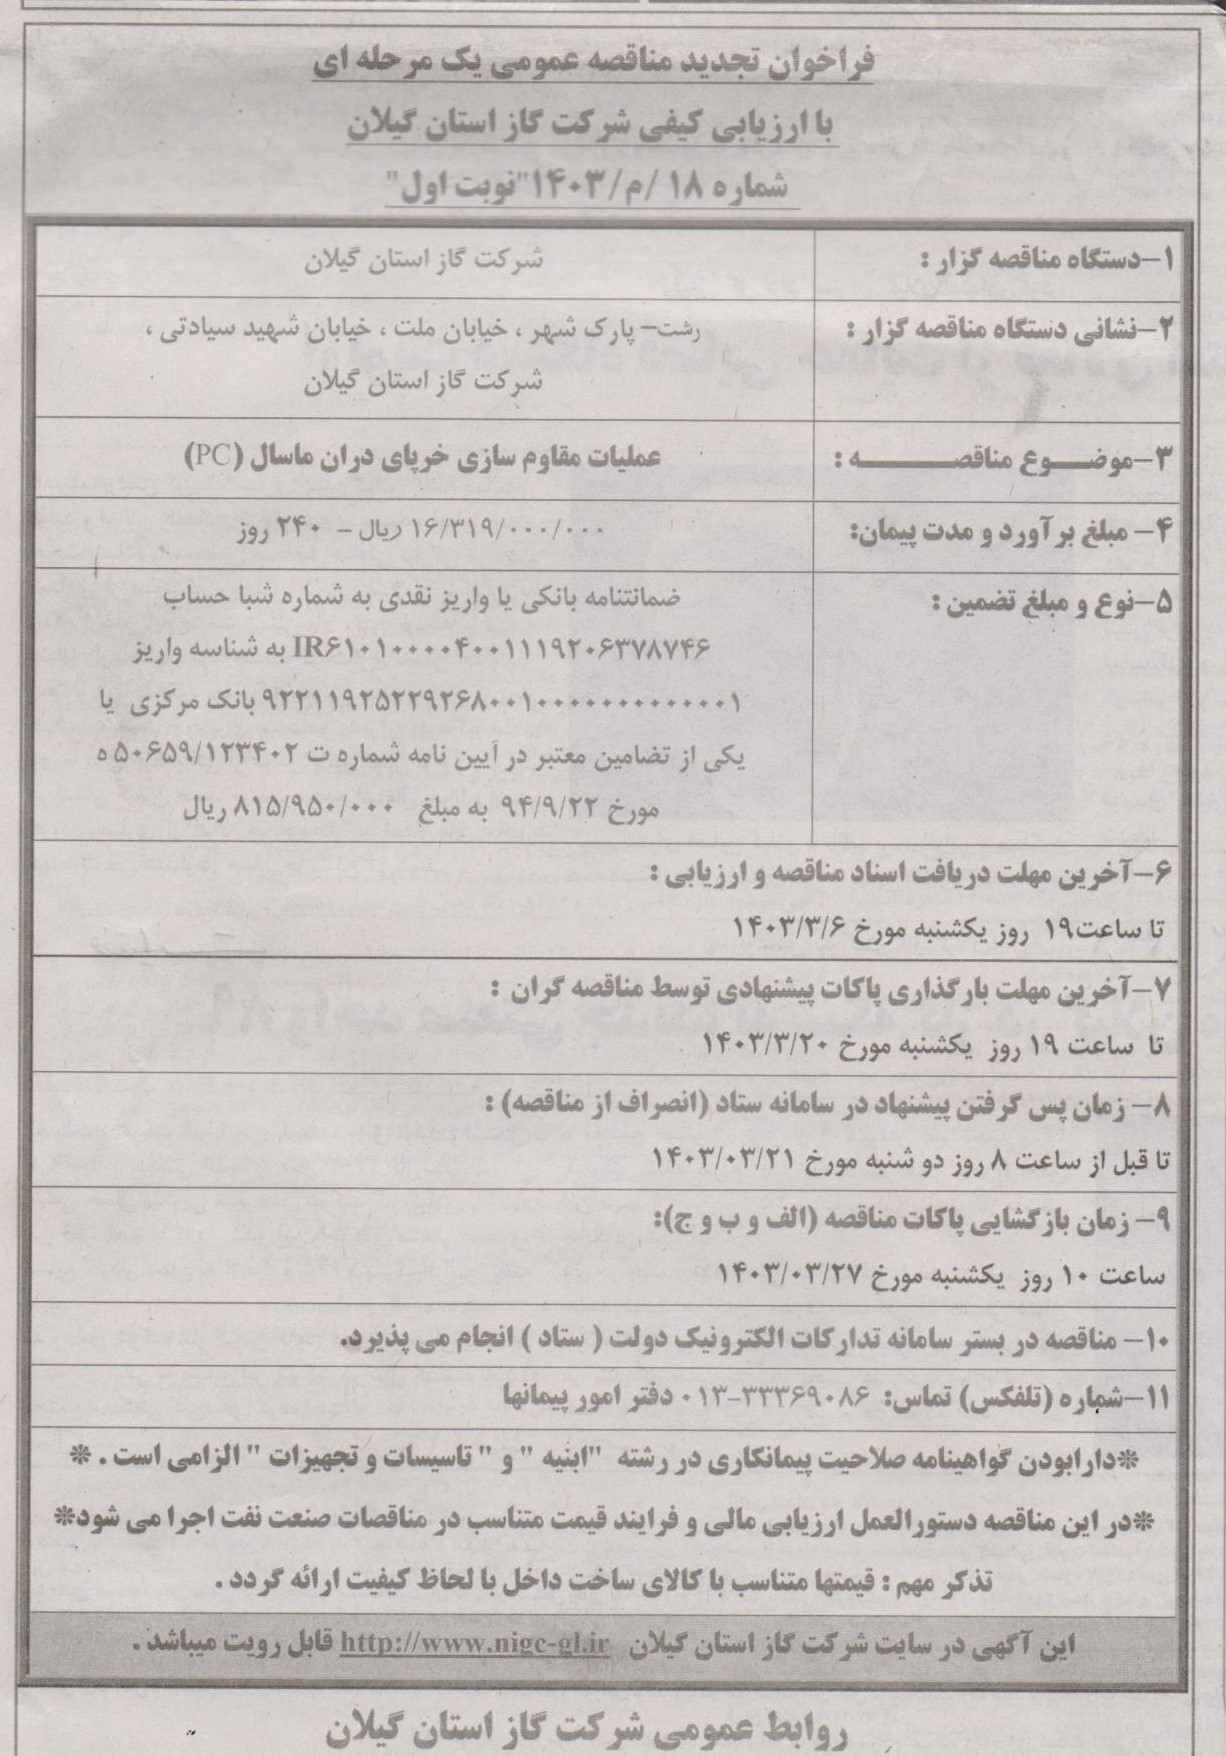 فراخوان تجدید مناقصه عمومی یک مرحله ای
با ارزیابی کیفی شرکت گاز استان گیلان
شماره ۱۸ /م/۱۴۰۳"نوبت اول"
۱-دستگاه مناقصه گزار :
شرکت گاز استان گیلان
۲-نشانی دستگاه مناقصه گزار :
رشت- پارک شهر ، خیابان ملت ، خیابان شهید سیادتی ،
شرکت گاز استان گیلان
۳-موضـــوع مناقصــــــــه :
عملیات مقاوم سازی خرپای دران ماسال (PC)
۴- مبلغ برآورد و مدت پیمان:
۱۶/۳۱۹/۰۰۰/۰۰۰ ریال - ۲۴۰ روز
۵-نوع و مبلغ تضمین :
ضمانتنامه بانکی یا واریز نقدی به شماره شبا حساب
IR۶۱۰۱۰۰۰۰۴۰۰۱۱۱۹۲۰۶۳۷۸۷۴۶ به شناسه واریز
۹۲۲۱۱۹۲۵۲۲۹۲۶۸۰۰۱۰۰۰۰۰۰۰۰۰۰۰۰۱ بانک مرکزی یا
یکی از تضامین معتبر در آیین نامه شماره ت ۵۰۶۵۹/۱۲۳۴۰۲ ه
مورخ ۹۴/۹/۲۲ به مبلغ ۸۱۵/۹۵۰/۰۰۰ ریال
۶-آخرین مهلت دریافت اسناد مناقصه و ارزیابی :
تا ساعت۱۹ روز یکشنبه مورخ ۱۴۰۳/۳/۶
۷-آخرین مهلت بارگذاری پاکات پیشنهادی توسط مناقصه گران :
تا ساعت ۱۹ روز یکشنبه مورخ ۱۴۰۳/۳/۲۰
۸- زمان پس گرفتن پیشنهاد در سامانه ستاد (انصراف از مناقصه) :
تا قبل از ساعت ۸ روز دو شنبه مورخ ۱۴۰۳/۰۳/۲۱
۹- زمان بازگشایی پاکات مناقصه (الف و ب و ج):
ساعت ۱۰ روز یکشنبه مورخ ۱۴۰۳/۰۳/۲۷
۱۰- مناقصه در بستر سامانه تدارکات الکترونیک دولت ( ستاد ) انجام می پذیرد.
۱۱-شماره (تلفکس) تماس: ۳۳۳۶۹۰۸۶-۰۱۳ دفتر امور پیمانها
*دارابودن گواهینامه صلاحیت پیمانکاری در رشته "ابنیه " و " تاسیسات و تجهیزات " الزامی است . *
*در این مناقصه دستورالعمل ارزیابی مالی و فرایند قیمت متناسب در مناقصات صنعت نفت اجرا می شود*
تذکر مهم : قیمتها متناسب با کالای ساخت داخل با لحاظ کیفیت ارائه گردد .
این آگهی در سایت شرکت گاز استان گیلان http://www.nigc-gl.ir قابل رویت میباشد .
روابط عمومی شرکت گاز استان گیلان